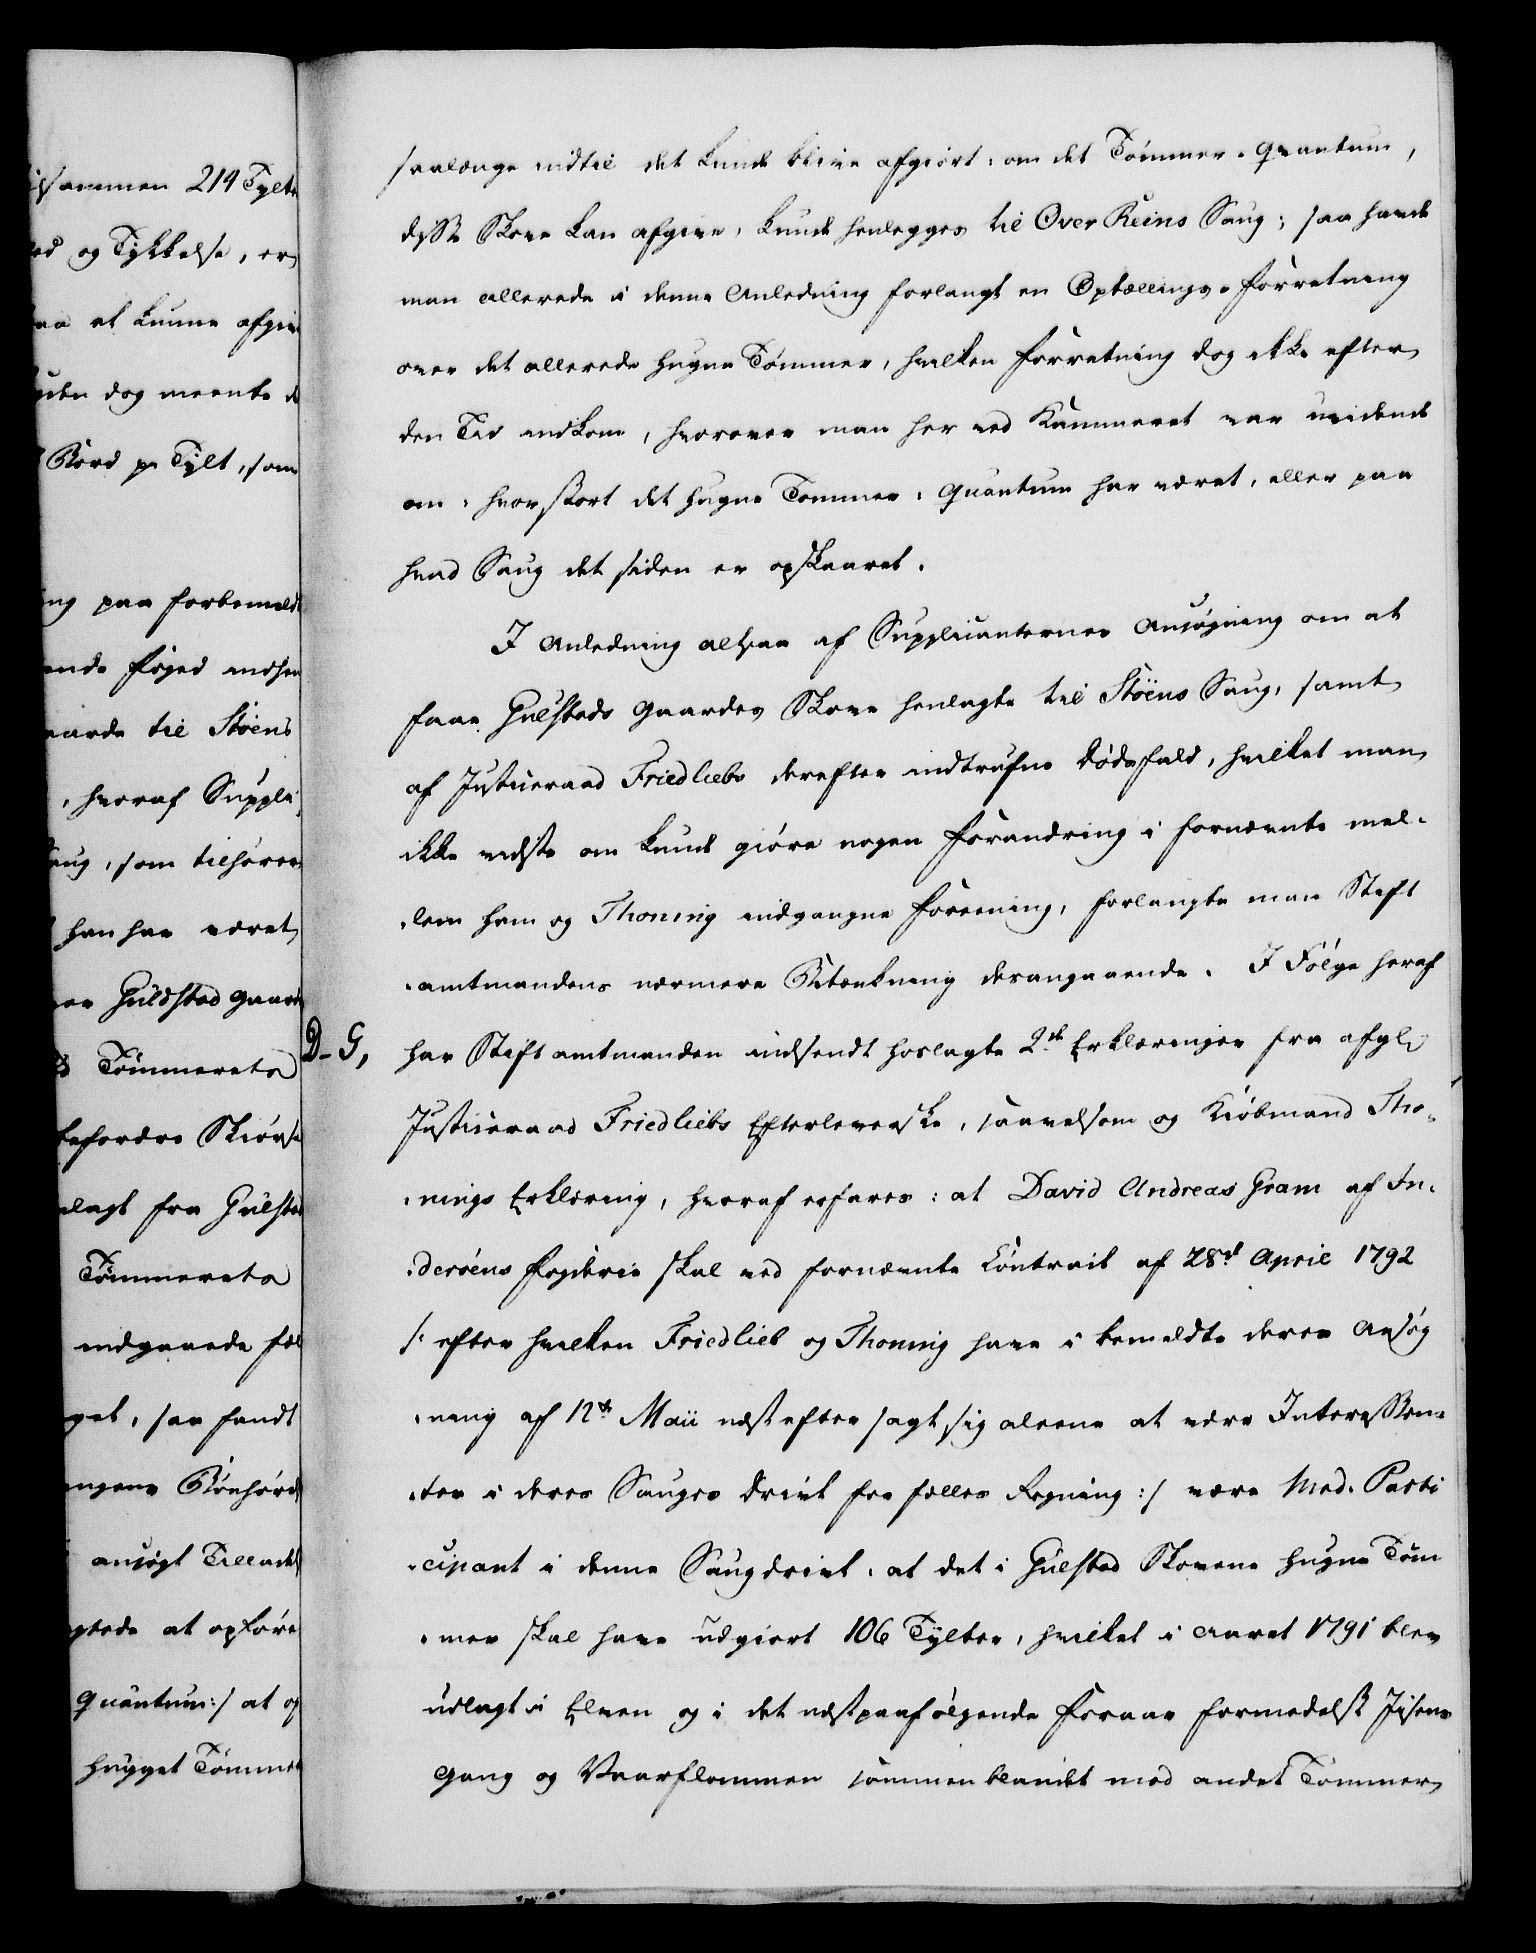 ilsammen 214 Tylte
ed og Tykkelse, er
aa at kunne afgiv
uden dog meente d
Bord pr Tylt, som
ing paa forbemeldt
ende Foged indsen
aarde til Stöens
, hvoraf Suppli
aug, som tilhører
han har været
er Guldstad Gaard
Tømmerets
befordre Skiørs
lagt fra Gulsta
Tømmerets
indgaaede fæl
get, saa fandt
ngens Bönhørd
ansøgt Tilladel
gtede at opføre
Quantum:/ at op
hugget Tømmer
saalænge indtil det kunde blive afgiört, om det Tömmer-Quantum,
disse Skove kan afgive, kunde henlegges til Over Reins Saug; saa havde
man allerede i denne Anledning forlangt en Optællings-Forretning
over det allerede hugne Tömmer, hvilken Forretning dog ikke efter
den Tid indkom, hvorover man her ved Kammeret var uvidende
om, hvor stort det hugne Tømmer-Quantum har været, eller paa
hvad Saug det siden er opskaaret.
I Anledning altsaa af Supplicanternes Ansøgning om at
faae Gulstads Gaardes Skove henlagte til Stöens Saug, samt
af Justiceraad Friedliebs derefter indtrufne Dödsfald, hvilket man
ikke vidste om kunde giöre nogen Forandring i fornævnte mel-
lem ham og Thoning indgangne Forening, forlangte man Stift
amtmandens nærmere Betænkning desangaaende. I Fölge heraf
D-G, har Stiftamtmanden indsendt hoslagte 2de Erklæringer fra afgl.
Justiceraad Friedliebs Efterleverske, saavelsom og Kiöbmand Tho-
nings Erklæring, hvoraf erfares: at David Andreas Gram af In-
deröens Fogderie skal ved fornævnte Contract af 28de April 1792
/: efter hvilken Friedlieb og Thoning have i bemeldte deres Ansøg
ning af 12te Maii næst efter sagt sig alene at være Interessen-
ter i deres Sauges Drivt for fælles Regning :/ være Med-Parti
cipant i denne Saugdrivt, at det i Gulstad Skovene hugne Töm
mer skal have udgiort 106 Tylter, hvilket i Aaret 1791 blev
udlagt i Elven og i det næstpaafölgende Foraar formedelst Jisens
Gang og Vaarflommen sammenblandet med andet Tömmer